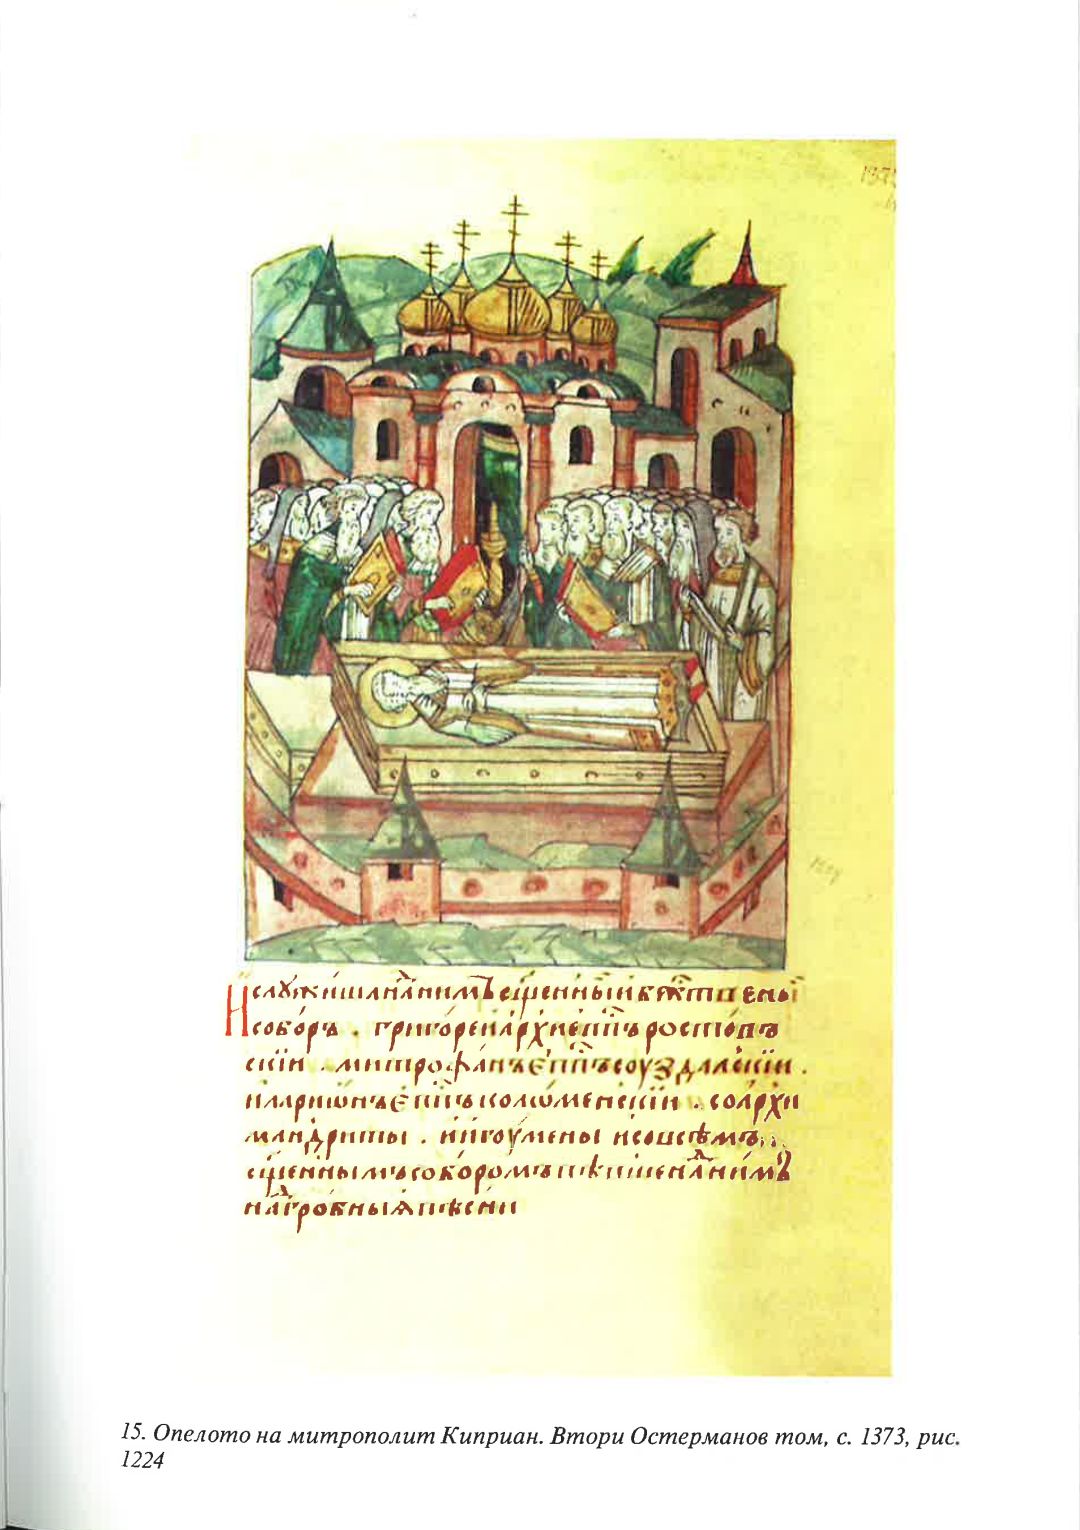 1373
И слꙋжиша над нимъ сщ҃енныи и бж҃твены
соборъ . григореи архиеп҃пъ ростовъ
скїи . митрофанъ еп҃пъ соуздалскїи .
иларишнъ еп҃пъ коломенскїи . со архи
мандриты . и игоумены и со всѣмъ
сщ҃еннымъ соборомъ пѣвше над нимъ
надгробныѧ пѣсни
15. Опелото на митрополит Киприан. Втори Остерманов том, с. 1373, рис.
1224